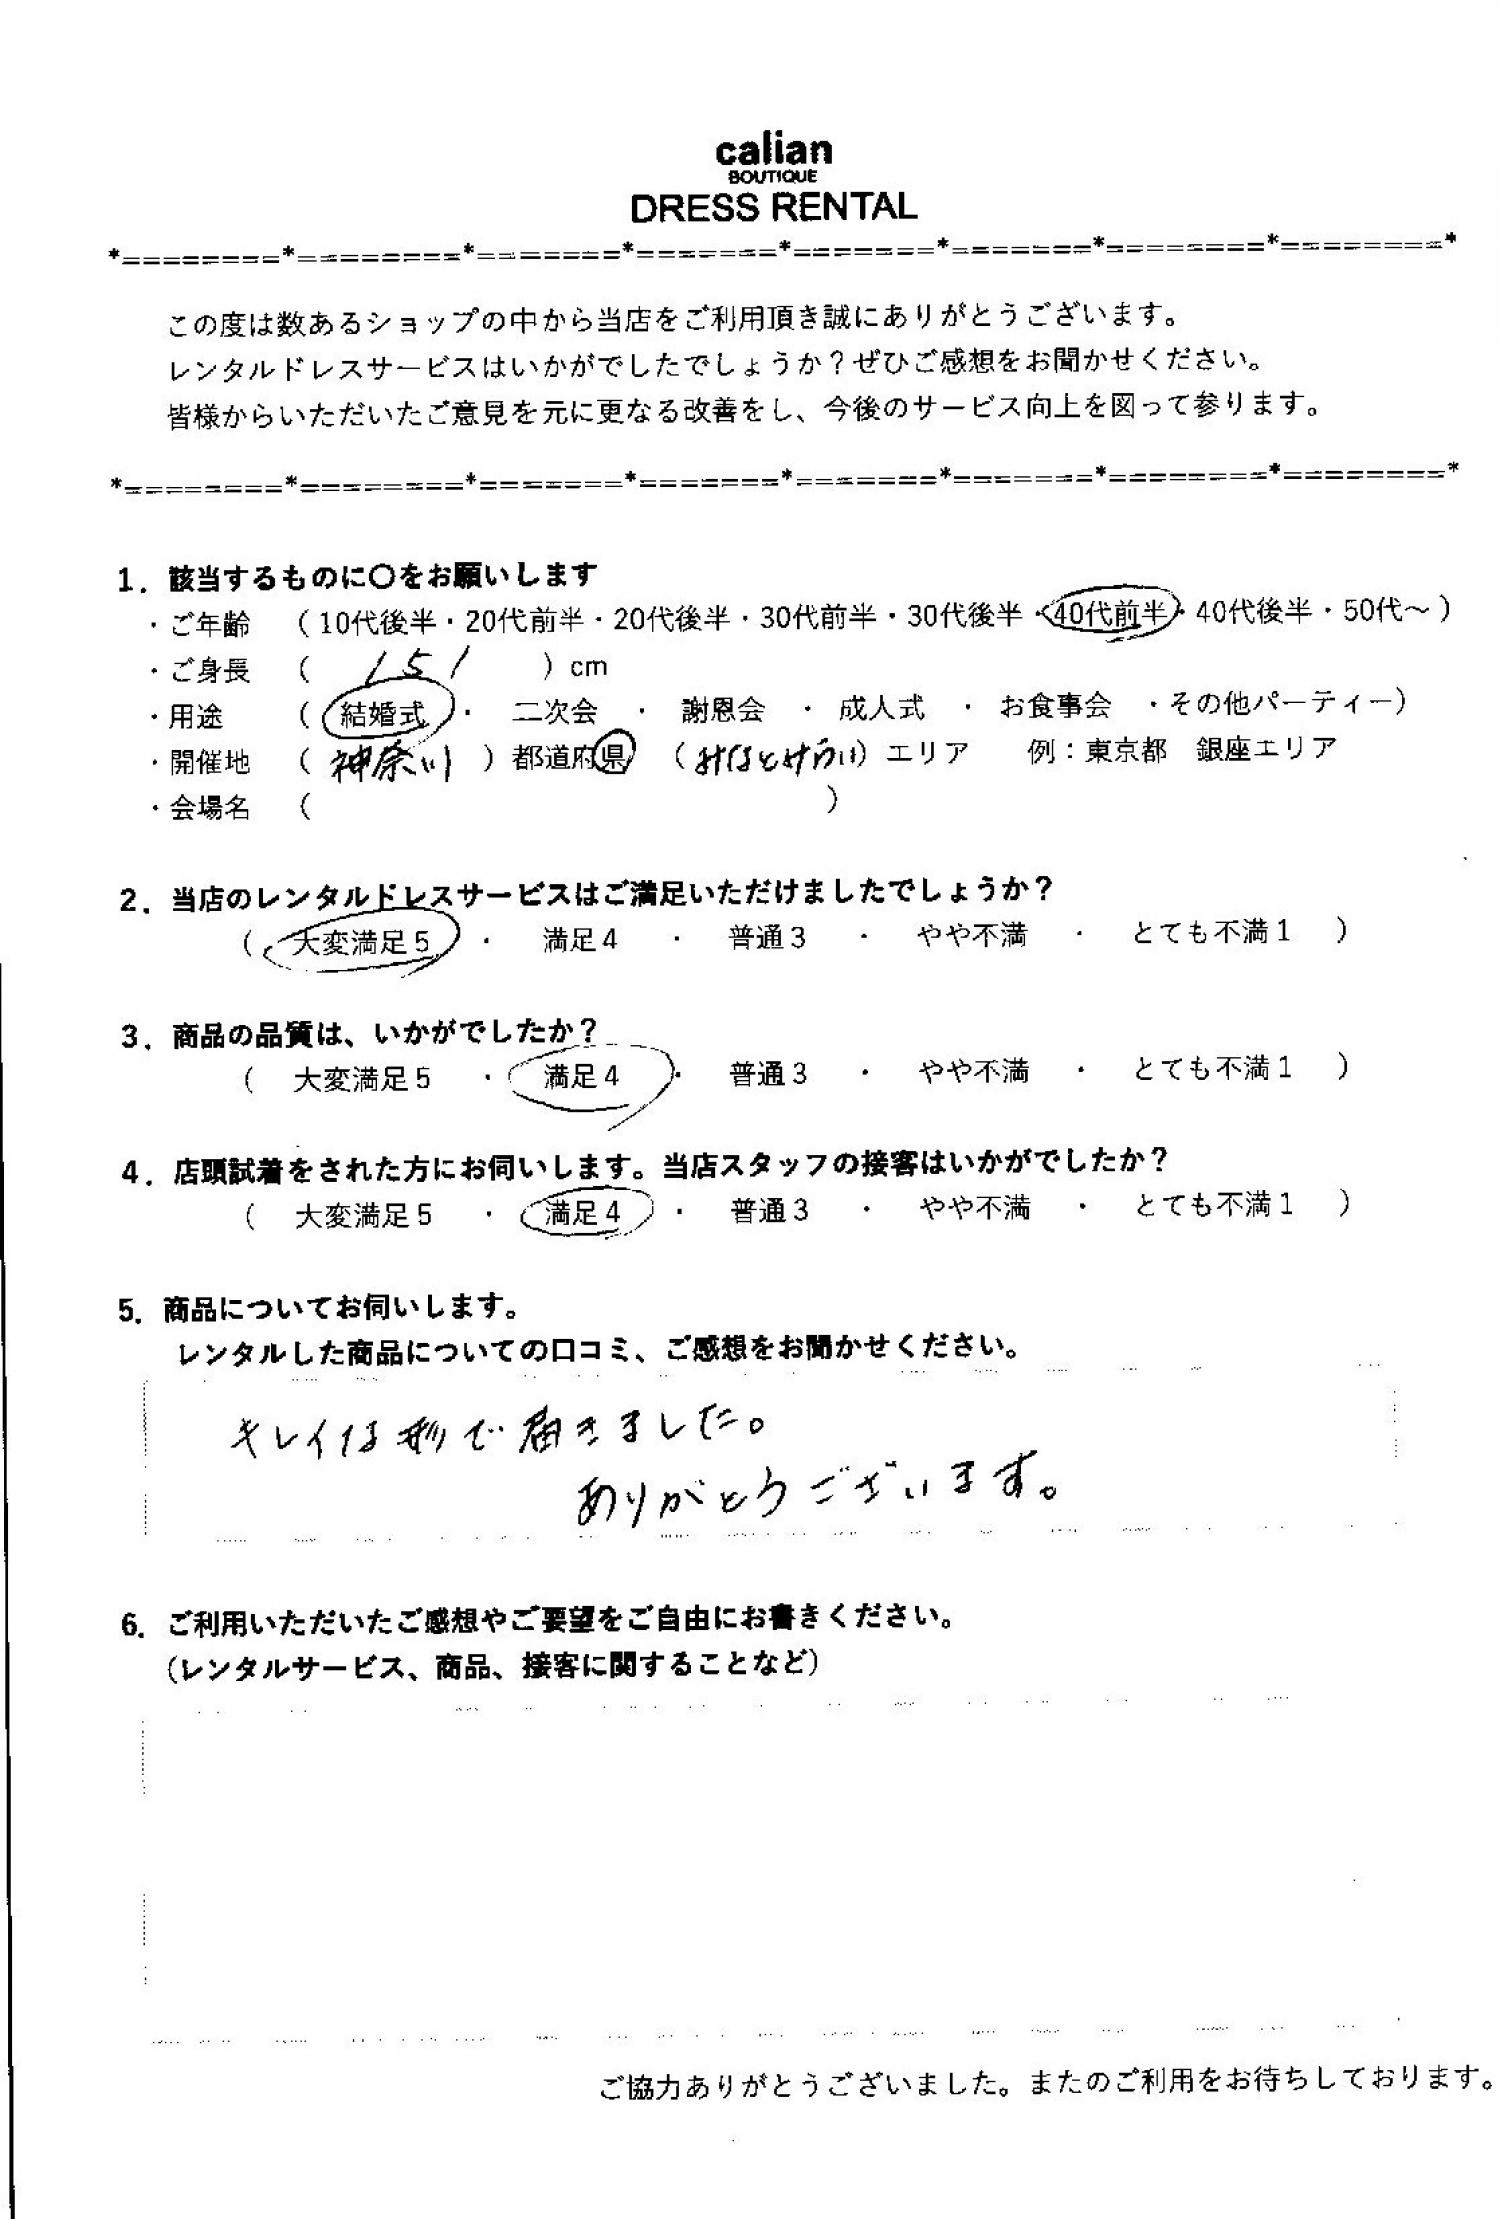 calian
BOUTIQUE
DRESS RENTAL
*========*========*=======*=======*=======*=======*========*========*
この度は数あるショップの中から当店をご利用頂き誠にありがとうございます。
レンタルドレスサービスはいかがでしたでしょうか？ぜひご感想をお聞かせください。
皆様からいただいたご意見を元に更なる改善をし、今後のサービス向上を図って参ります。
*========*========*=======*=======*=======*=======*========*========*
1. 該当するものに〇をお願いします
・ご年齢 （10代後半・20代前半・20代後半・30代前半・30代後半・40代前半・40代後半・50代～）
・ご身長 （ 151 ）cm
・用途 （ 結婚式 ・ 二次会 ・ 謝恩会 ・ 成人式 ・ お食事会 ・その他パーティー）
・開催地 （ 神奈川 ）都道府県 （みなとみらい）エリア 例：東京都 銀座エリア
・会場名 （ ）
2. 当店のレンタルドレスサービスはご満足いただけましたでしょうか？
（ 大変満足５ ・ 満足４ ・ 普通３ ・ やや不満 ・ とても不満１ ）
3. 商品の品質は、いかがでしたか？
（ 大変満足５ ・ 満足４ ・ 普通３ ・ やや不満 ・ とても不満１ ）
4. 店頭試着をされた方にお伺いします。当店スタッフの接客はいかがでしたか？
（ 大変満足５ ・ 満足４ ・ 普通３ ・ やや不満 ・ とても不満１ ）
5. 商品についてお伺いします。
レンタルした商品についての口コミ、ご感想をお聞かせください。
キレイな形で届きました。
ありがとうございます。
6. ご利用いただいたご感想やご要望をご自由にお書きください。
（レンタルサービス、商品、接客に関することなど）
ご協力ありがとうございました。またのご利用をお待ちしております。